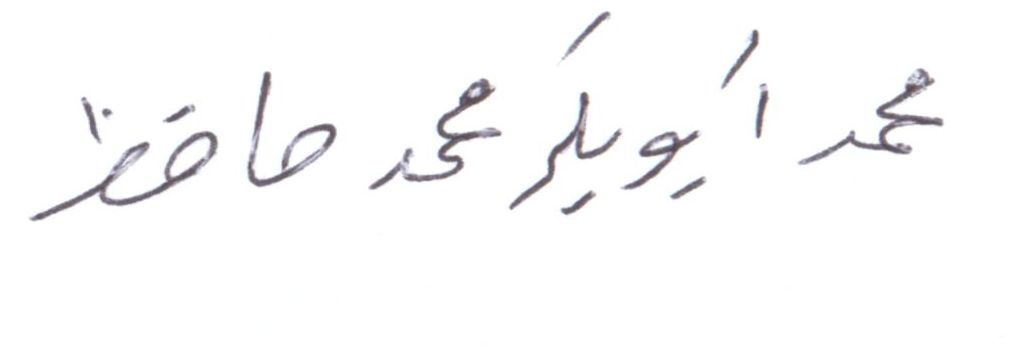 محمد ابوبكر محمد حافظ